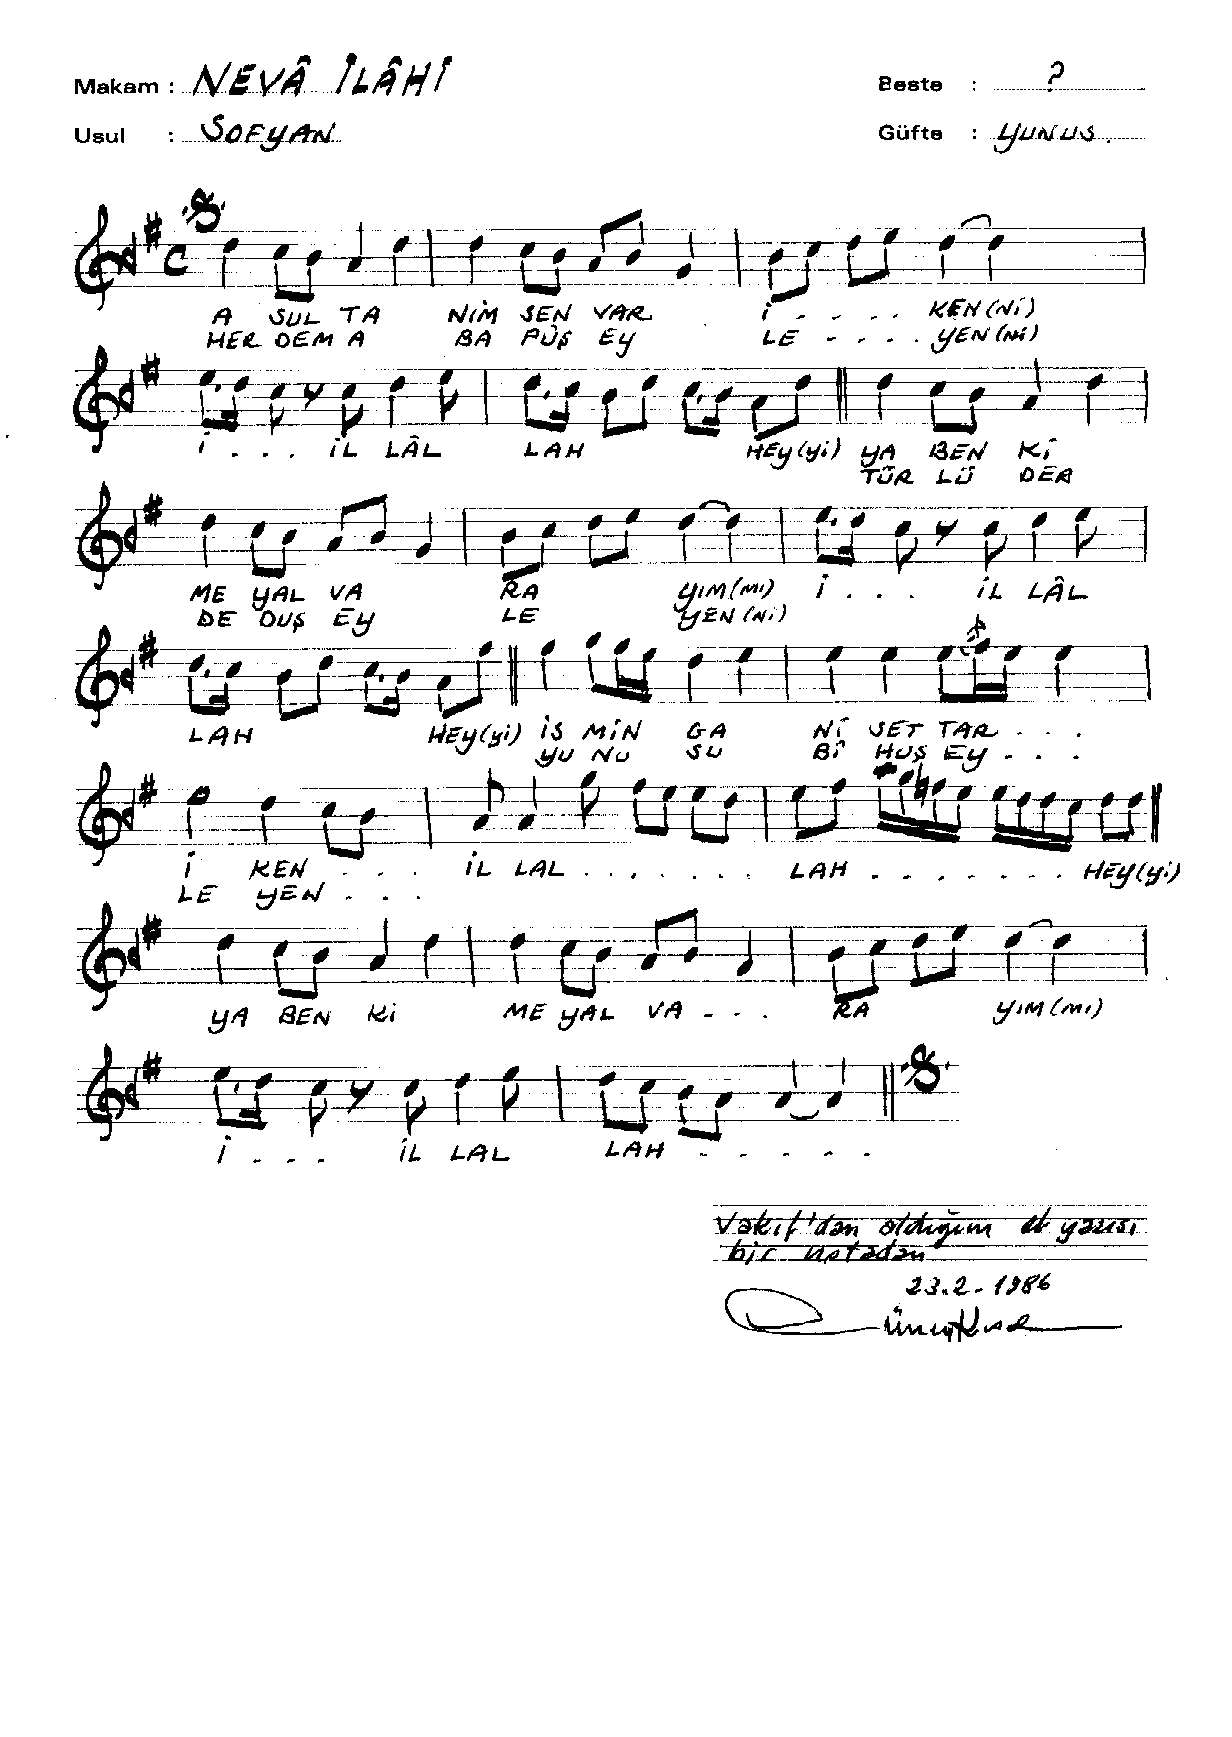 Makam : NEVÂ İLÂHİ Beste : ?
Usul : SOFYAN Güfte : YUNUS.
A SUL TA NİM SEN VAR İ - - - - KEN(Nİ)
HER DEM A BA PÛŞ EY LE - - - - YEN(Nİ)
İ . . . İL LÂL LAH HEY(Yİ) YA BEN Kİ
TÜR LÜ DER
ME YAL VA RA YIM(MI) İ . . . İL LÂL
DE DUŞ EY LE YEN(Nİ)
LAH HEY(Yİ) İS MİN GA Nİ SET TAR - - -
YU NU SU Bİ HUŞ EY - - -
İ KEN . . . İL LAL . . . . . . . LAH - - - - - - - HEY(Yİ)
LE YEN - - -
YA BEN Kİ ME YAL VA - - - RA YIM(MI)
İ - - - İL LAL LAH - - - - -
Vakıf'dan aldığım el yazısı
bir notadan
23.2.1986